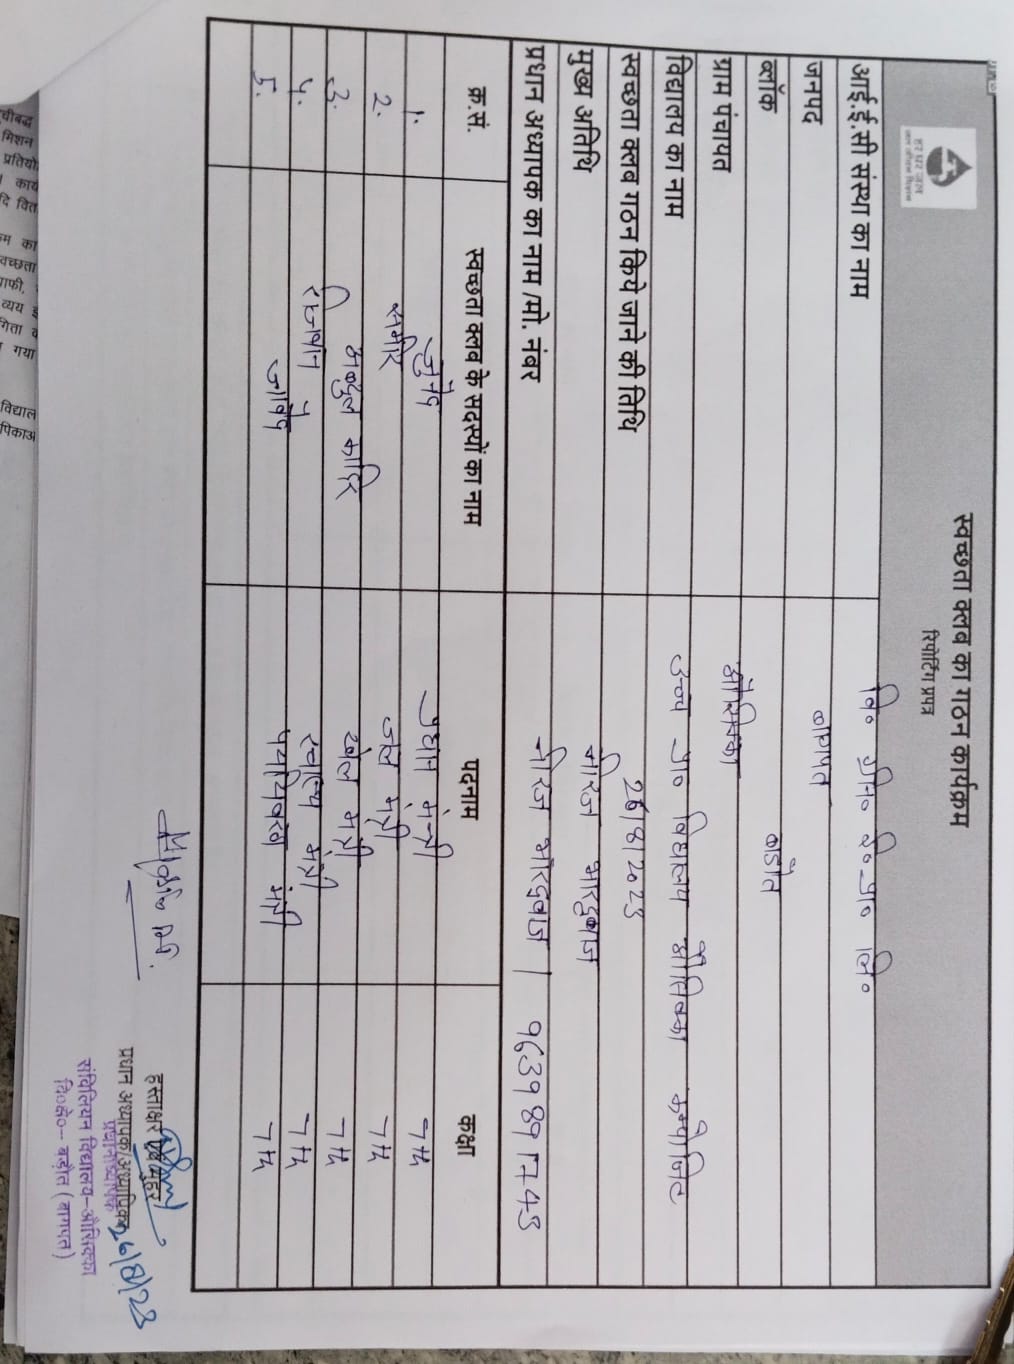 हर घर जल
जल जीवन मिशन
स्वच्छता क्लब का गठन कार्यक्रम
रिपोर्टिंग प्रपत्र
आई.ई.सी संस्था का नाम
जनपद बागपत
ब्लॉक बडौत
ग्राम पंचायत औसिक्का
विद्यालय का नाम उच्च प्रा० विद्यालय औसिक्का कम्पोजिट
स्वच्छता क्लब गठन किये जाने की तिथि 26/8/2023
मुख्य अतिथि नीरज भारद्वाज
प्रधान अध्यापक का नाम/मो. नंबर नीरज भारद्वाज |
क्र.सं. स्वच्छता क्लब के सदस्यों का नाम पदनाम कक्षा
1. जुनैद प्रधान मंत्री 7th
2. समीर जल मंत्री 7th
3. अब्दुल कादिर खेल मंत्री 7th
4. रिजवान स्वास्थ्य मंत्री 7th
5. जावेद मंत्री 7th
हस्ताक्षर एवं मुहर
प्रधान अध्यापक/अध्यापिका
प्रधानाध्यापक
संविलियन विद्यालय-औसिक्का
वि०क्षे०- बड़ौत (बागपत)
26/8/23